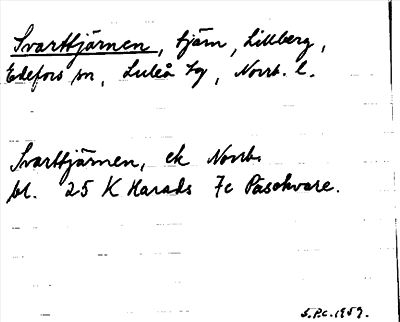 Svarttjärnen, tjärn, Lillberg,
Edefors sn, Luleå tg, Norrb. l.
Svarttjärnen, ek Norrb.
bl. 25 K Harads 7c Pasekvare.
S.P.C. 1959.